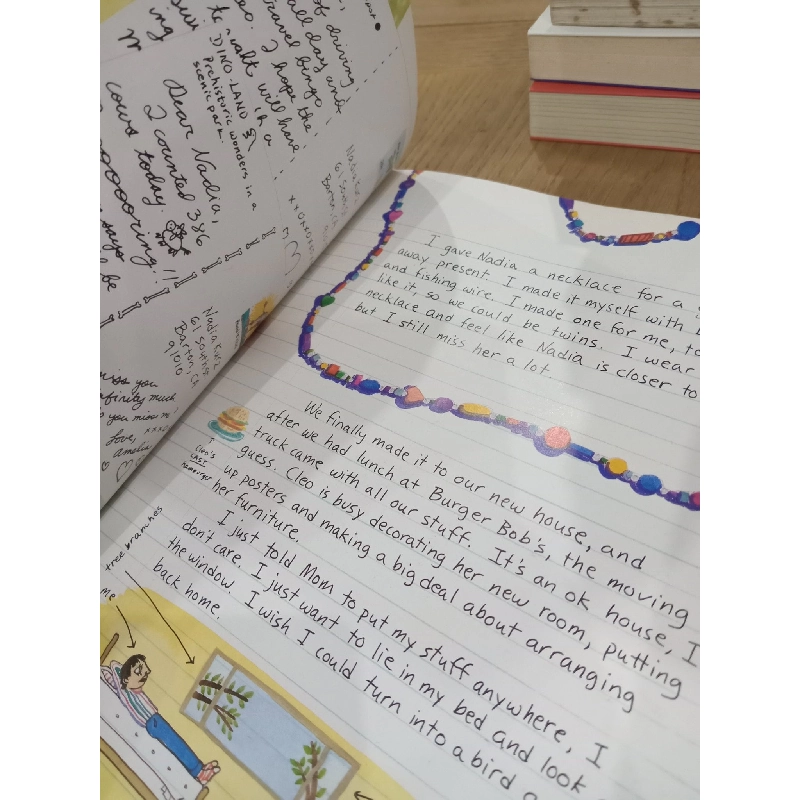 of driving,
all day and
travel bingo
I hope the
walk will have
in a
DINO-LAND
Prehistoric wonders in a
scenic park.
ing
Dear Nadia,
I counted 386
cows today.
says
be
Nadia Kurz
61 South
Barton, CA
91010
miss you
infinity much
you miss me
love,
amelia
xxxo
Nadia Kurz
61 South
Barton,
I gave Nadia a necklace for a
away present. I made it myself with
and fishing wire. I made one for me, too
like it, so we could be twins. I wear
necklace and feel like Nadia is closer to
but I still miss her a lot.
We finally made it to our new house, and
after we had lunch at Burger Bob's, the moving
truck came with all our stuff. It's an ok house, I
guess. Cleo is busy decorating her new room, putting
up posters and making a big deal about arranging
her furniture.
Cleo's
LAST
hamburger
I just told Mom to put my stuff anywhere, I
don't care. I just want to lie in my bed and look
the window. I wish I could turn into a bird
back home.
tree branches
me